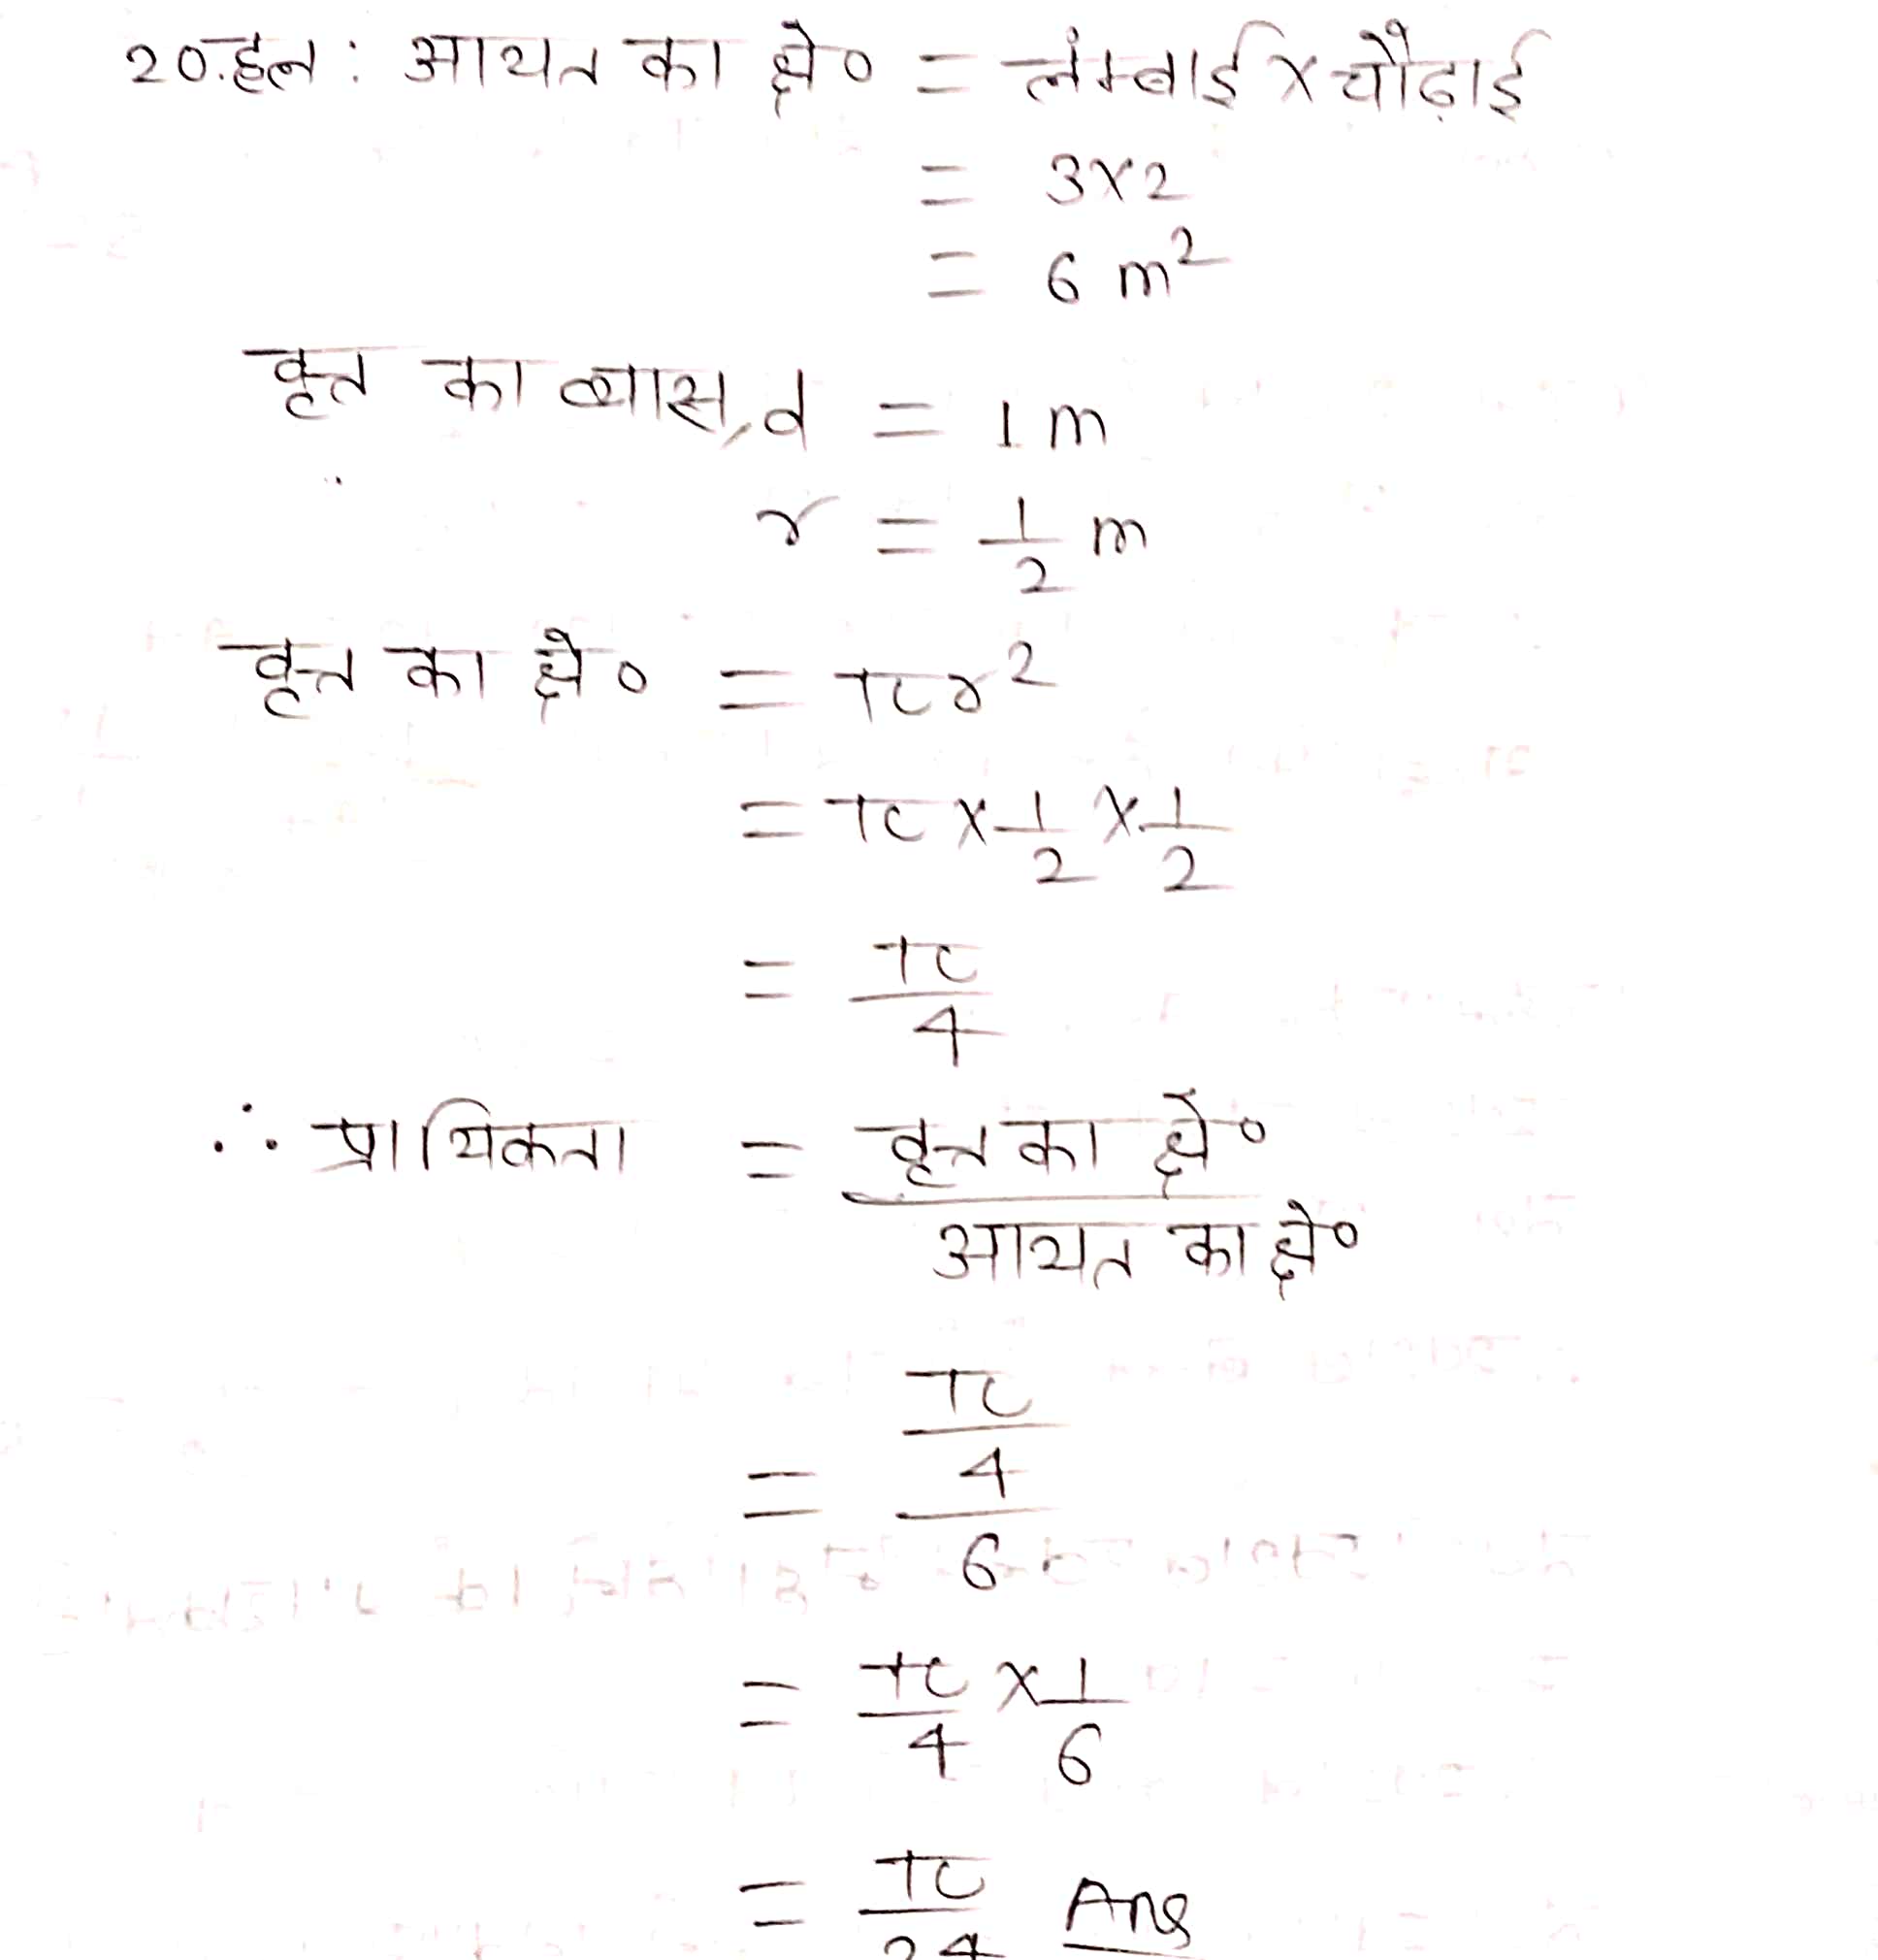 20. हल : आयत का क्षे० = लंम्बाई × चौढ़ाई
= 3×2
= 6 m²
वृत का व्यास, d = 1 m
r = 1/2 m
वृत्त का क्षे० = πr²
= π × 1/2 × 1/2
= π/4
∴ प्रायिकता = वृत्त का क्षे० / आयत का क्षे०
= π/4 / 6
= π/4 × 1/6
= π/24 Ans